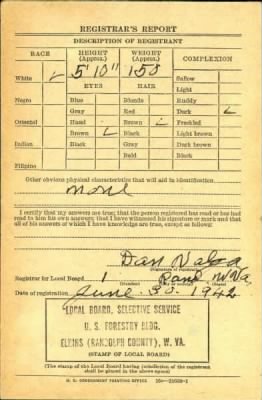 REGISTRAR'S REPORT
DESCRIPTION OF REGISTRANT
RACE HEIGHT (Approx.) WEIGHT (Approx.) COMPLEXION
White ✓ 5' 10" 150 Sallow
EYES HAIR Light
Negro Blue Blonde Ruddy
Gray Red Dark ✓
Oriental Hazel Brown ✓ Freckled
Brown ✓ Black Light brown
Indian Black Gray Dark brown
Bald Black
Filipino
Other obvious physical characteristics that will aid in identification
None
I certify that my answers are true; that the person registered has read or has had
read to him his own answers; that I have witnessed his signature or mark and that
all of his answers of which I have knowledge are true, except as follows:
Dan
(Signature of registrar)
Registrar for Local Board 1 Rand W Va
(Number) (City or county) (State)
Date of registration June 1942
LOCAL BOARD, SELECTIVE SERVICE
U. S. FORESTRY BLDG.
ELKINS (RANDOLPH COUNTY), W. VA.
(STAMP OF LOCAL BOARD)
(The stamp of the Local Board having jurisdiction of the registrant
shall be placed in the above space)
U. S. GOVERNMENT PRINTING OFFICE